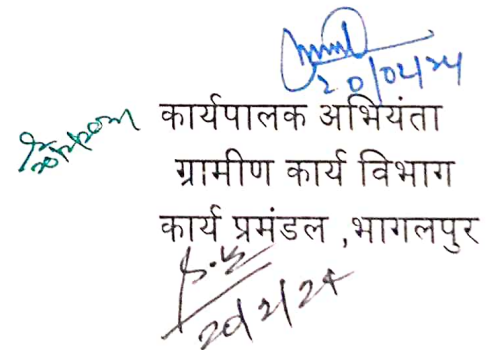 20/02/24
कार्यपालक अभियंता
ग्रामीण कार्य विभाग
कार्य प्रमंडल ,भागलपुर
20/2/24